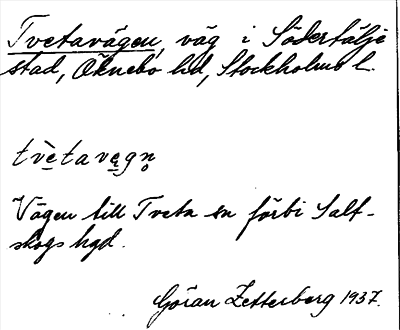 Tvetavägen, väg i Södertälje
stad, Öknebo hd, Stockholms l.
tvè̱tavęgn̥
Vägen till Tveta sn förbi Salt-
skogs hgd.
Göran Zetterberg 1937.